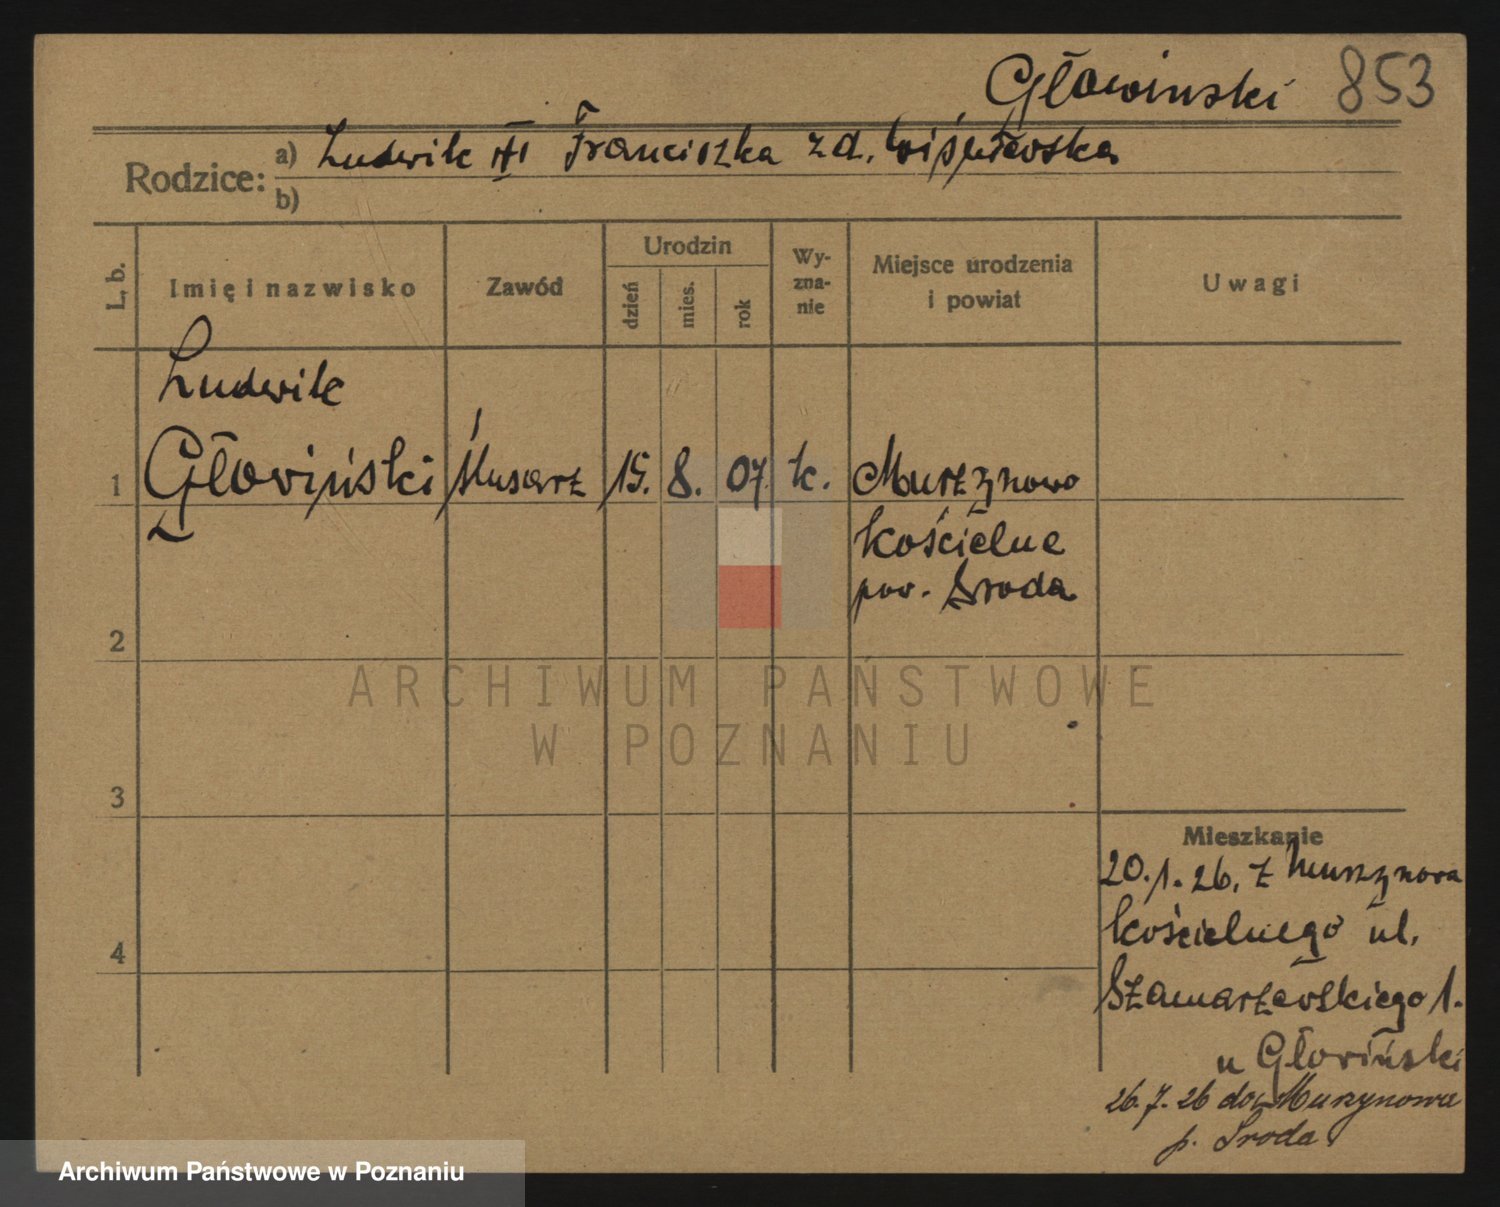 Głowinski 853
Rodzice: a) Ludwik Franciszka zd. Wiśniewska
b)
L. b. Imię i nazwisko Zawód Urodzin dzień mies. rok Wy-zna-nie Miejsce urodzenia i powiat Uwagi
Ludwik
1 Głowiński ślusarz 15. 8. 07. k. Murzynowo
Kościelne
pow. Środa
2
ARCHIWUM PAŃSTWOWE
W POZNANIU
3
Mieszkanie
20.1.26. z Murzynowa
Kościelnego ul.
4
Szamarzewskiego 1.
u Głowiński
26.7.26 do Murzynowa
p. Środa
Archiwum Państwowe w Poznaniu